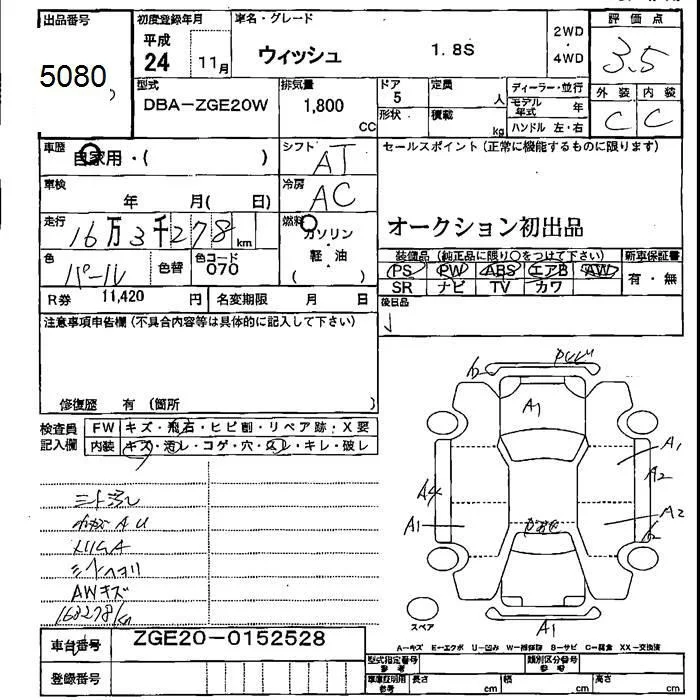 出品番号
5080
初度登録年月
平成
24 11月
車名・グレード
ウィッシュ 1.8S
2WD
・
4WD
評価点
3.5
外装 内装
C C
型式
DBA-ZGE20W
排気量
1,800
CC
ドア
5
定員
人
形状
積載
kg
ディーラー・並行
モデル年式 年
ハンドル 左・右
車歴
自家用・( )
シフト
AT
車検
年 月( 日)
冷房
AC
走行
16万3千278km
燃料
ガソリン
・
軽油
( )
色
パール
色替
色コード
070
R券 11,420 円
名変期限 月 日
セールスポイント(正常に機能するものに限ります)
オークション初出品
装備品(純正品に限り○をつけて下さい) 新車保証書
PS PW ABS エアB AW
SR ナビ TV カワ
有・無
後日品
注意事項申告欄(不具合内容等は具体的に記入して下さい)
修復歴 有 (箇所 )
検査員
記入欄
FW キズ・飛石・ヒビ割・リペア跡・X要
内装 キズ・汚レ・コゲ・穴・スレ・キレ・破レ
AWキズ
163278km
A1
A1
A2
A4
A1
A2
A1
スペア
A-キズ E-エクボ U-凹み W-補修跡 B-サビ C-腐食 XX-交換済
車台番号 ZGE20-0152528
登録番号
型式指定番号
参考
類別区分番号
参考
車庫証明用
参考
長さ cm
幅 cm
高さ cm